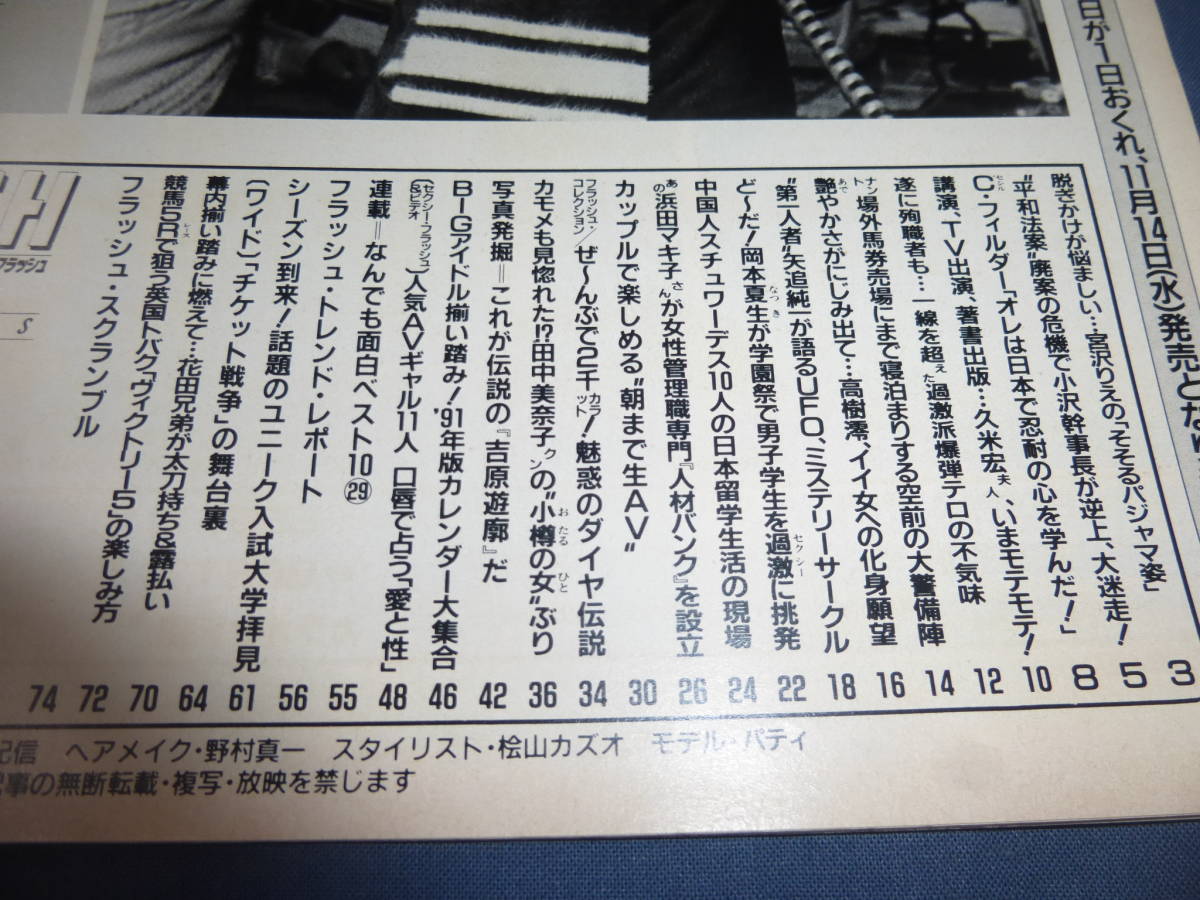 日が1日おくれ、11月14日(水)発売とな
脱ぎかけが悩ましい…宮沢りえの「そそるパジャマ姿」 3
"平和法案"廃案の危機で小沢幹事長が逆上、大迷走! 5
C・フィルダー「オレは日本で忍耐の心を学んだ!」 8
セシル
講演、TV出演、著書出版…久米宏夫人、いまモテモテ! 10
遂に殉職者も…一線を超えた過激派爆弾テロの不気味 12
ナント場外馬券売場にまで寝泊まりする空前の大警備陣 14
艶やかさがにじみ出て…高樹澪、イイ女への化身願望 16
あで
"第一人者"矢追純一が語るUFO、ミステリーサークル 18
ど〜だ!岡本夏生が学園祭で男子学生を過激に挑発 22
なつき
セクシー
中国人スチュワーデス10人の日本留学生活の現場 24
あの浜田マキ子さんが女性管理職専門『人材バンク』を設立 26
カップルで楽しめる"朝まで生AV" 30
フラッシュ・コレクション/ぜ〜んぶで2千カラット!魅惑のダイヤ伝説 34
カモメも見惚れた!?田中美奈子クンの"小樽の女"ぶり 36
おたる
ひと
写真発掘=これが伝説の『吉原遊廓』だ 42
BIGアイドル揃い踏み!'91年版カレンダー大集合 46
(セクシー・フラッシュ&ビデオ)人気AVギャル11人 口唇で占う「愛と性」 48
連載=なんでも面白ベスト10㉙ 55
フラッシュ・トレンド・レポート 56
シーズン到来!話題のユニーク入試大学拝見 61
(ワイド)「チケット戦争」の舞台裏 64
幕内揃い踏みに燃えて…花田兄弟が太刀持ち&露払い 70
競馬5Rで狙う英国トバク「ヴィクトリー5」の楽しみ方 72
レース
フラッシュ・スクランブル 74
フラッシュ
S
配信 ヘアメイク・野村真一 スタイリスト・桧山カズオ モデル・パティ
記事の無断転載・複写・放映を禁じます